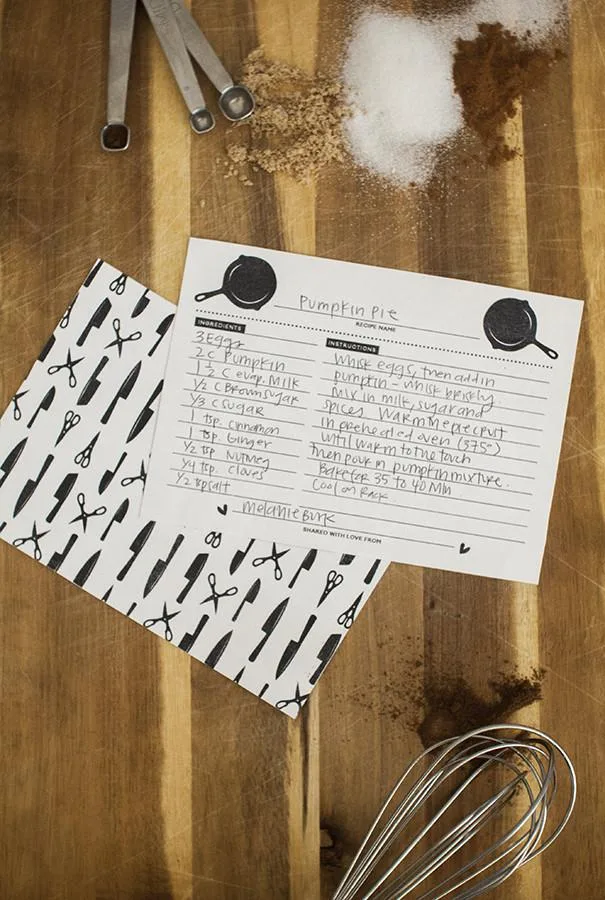 Pumpkin Pie
RECIPE NAME
INGREDIENTS
3 Eggs
2 C Pumpkin
1 1/2 C evap. Milk
1/2 C Brown sugar
1/3 C Sugar
1 tsp. cinnamon
1 tsp. Ginger
1/2 tsp Nutmeg
1/4 tsp. cloves
1/2 tsp salt
INSTRUCTIONS
Whisk eggs, then add in
pumpkin - whisk briskly.
Mix in milk, sugar and
spices. Warm the piecrust
in preheated oven (375°)
until warm to the touch
then pour in pumpkin mixture.
Bake for 35 to 40 Min
Cool on Rack.
Melanie Burk
SHARED WITH LOVE FROM